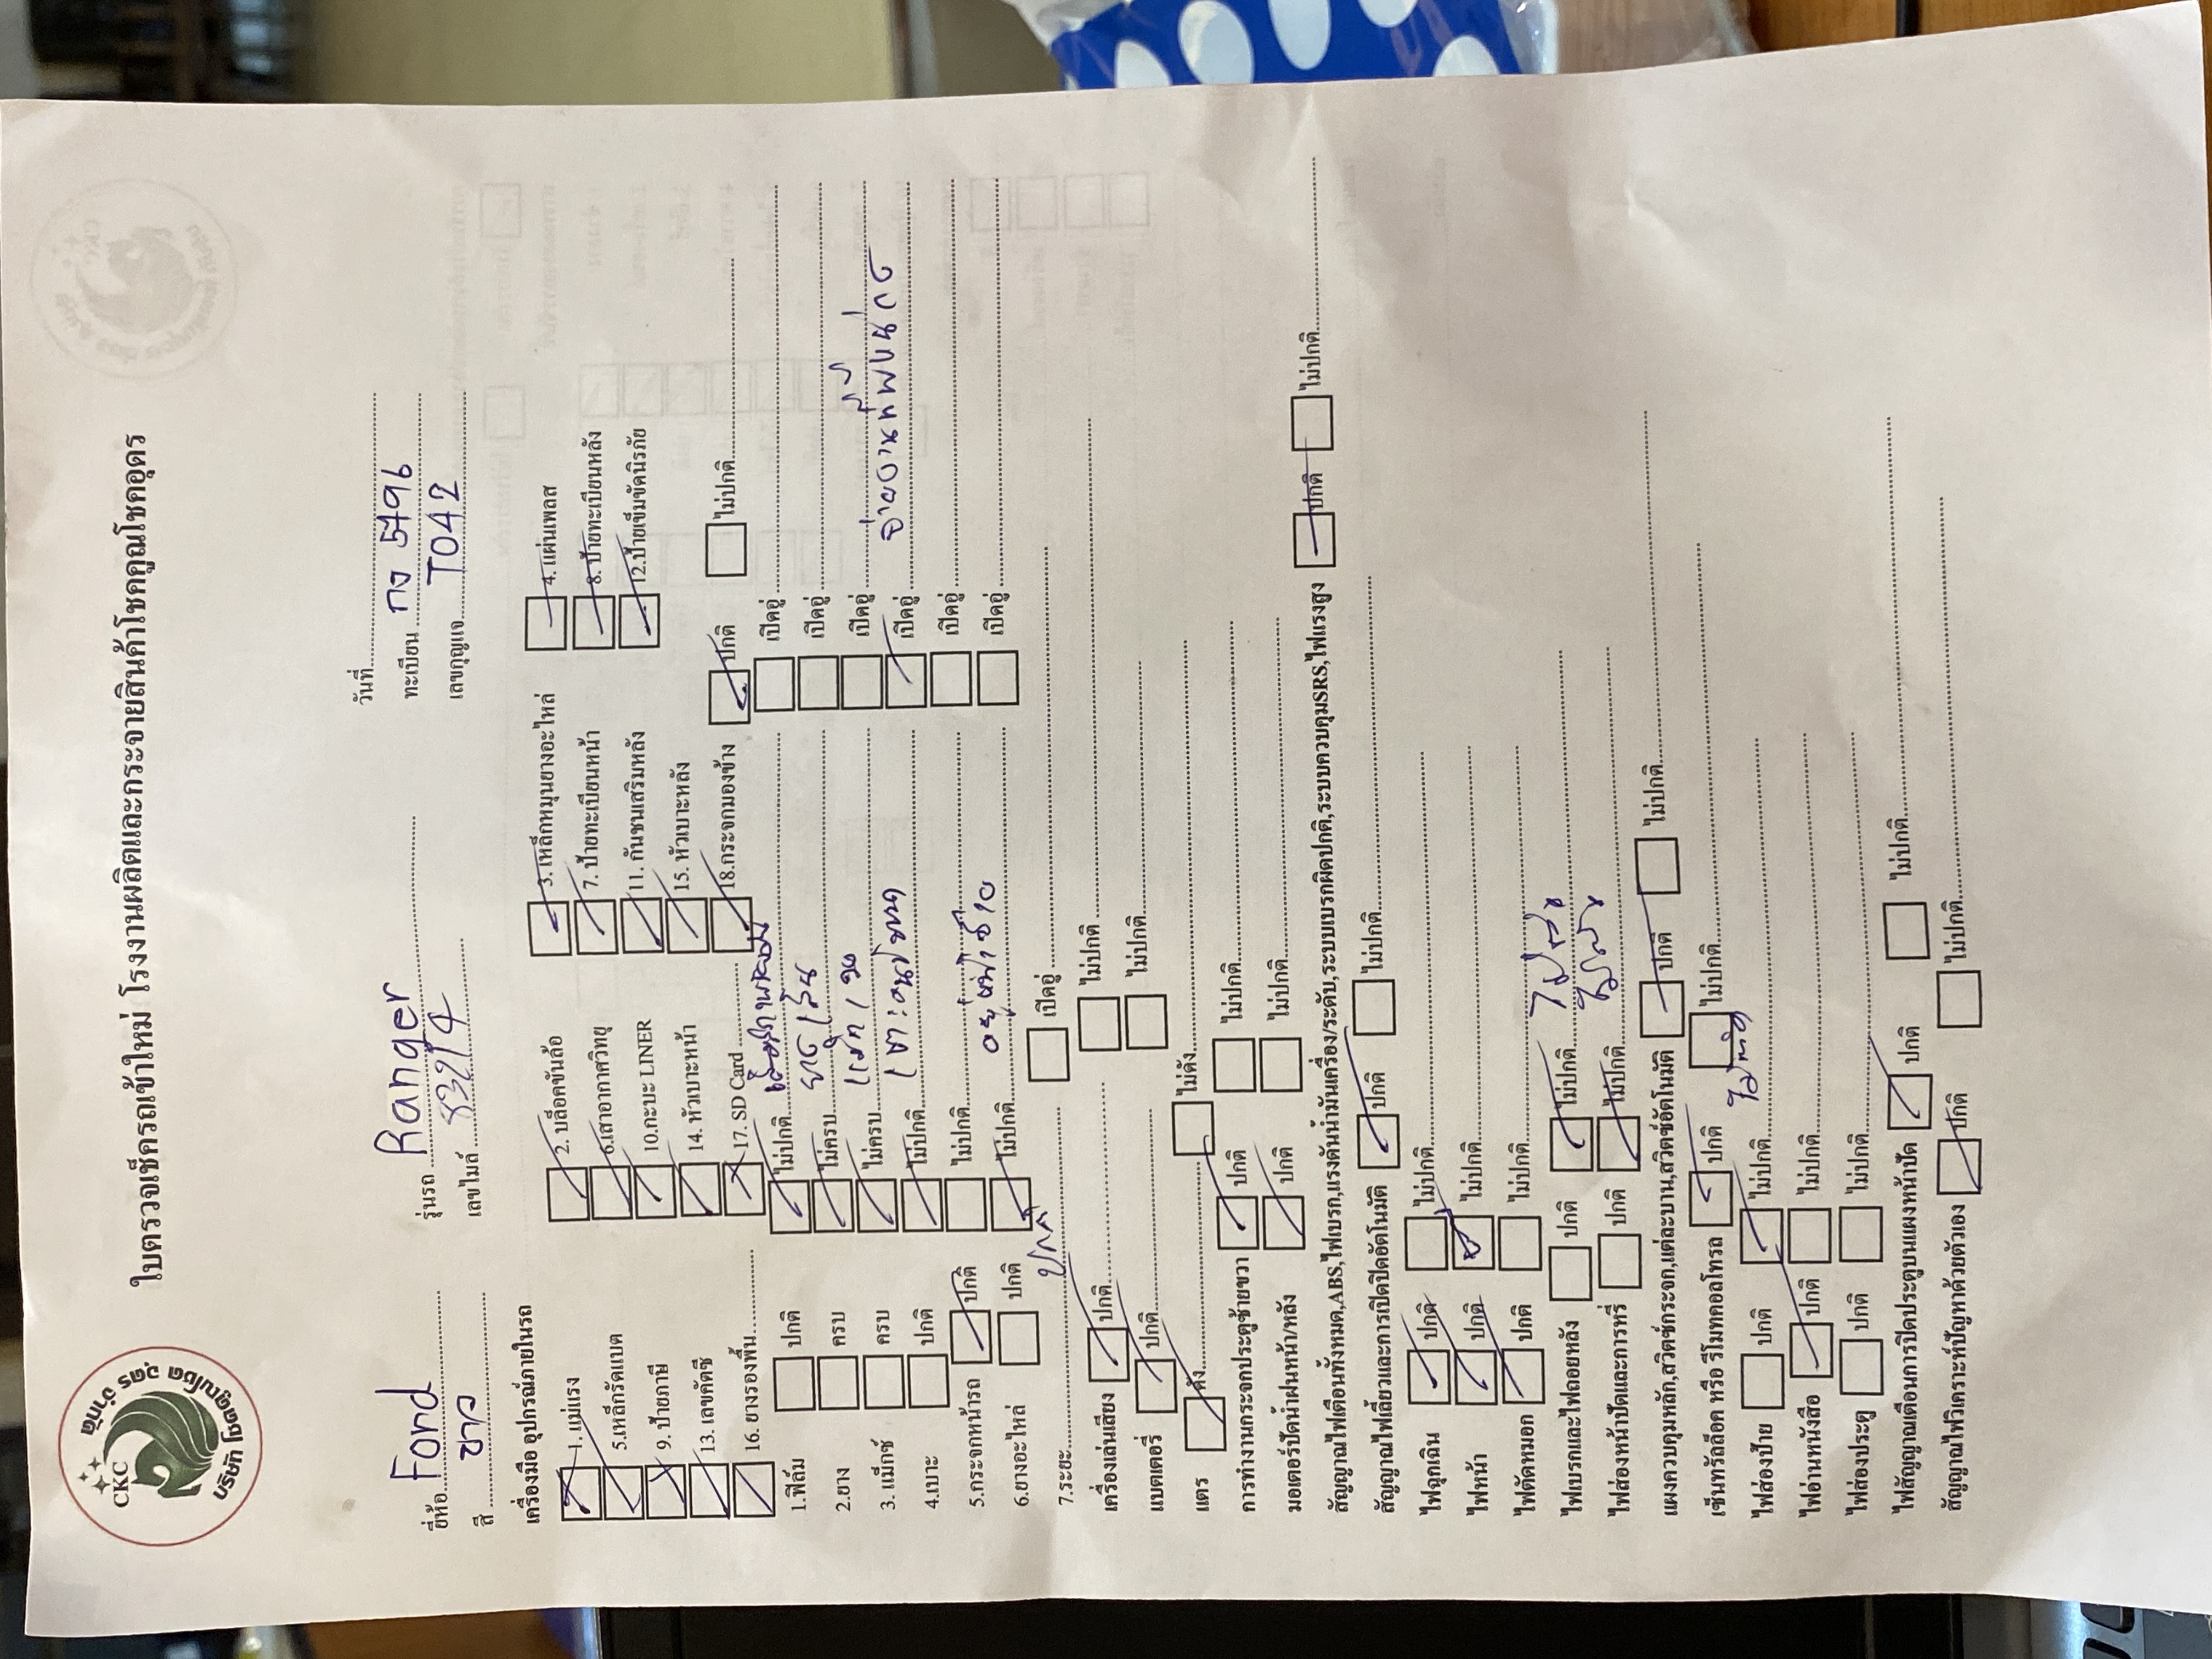 CKC
บริษัท โชคคูณโชค อุดร จำกัด
ใบตรวจเช็ครถเข้าใหม่ โรงงานผลิตและกระจายสินค้าโชคคูณโชคอุดร
วันที่
ยี่ห้อ Ford รุ่นรถ Ranger ทะเบียน กง 5796
สี ขาว เลขไมล์ เลขกุญแจ T042
เครื่องมือ อุปกรณ์ภายในรถ
1. แม่แรง 2. บล็อคขันล้อ 3. เหล็กหมุนยางอะไหล่ 4. แผ่นเพลส
5.เหล็กรัดแบต 6.เสาอากาศวิทยุ 7. ป้ายทะเบียนหน้า 8. ป้ายทะเบียนหลัง
9. ป้ายภาษี 10.กะบะ LINER 11. กันชนเสริมหลัง 12.ป้ายเข็มขัดนิรภัย
13. เลขคัตซี 14. หัวเบาะหน้า 15. หัวเบาะหลัง
16. ยางรองพื้น 17. SD Card 18.กระจกมองข้าง ปกติ ไม่ปกติ
1.ฟิล์ม ปกติ ไม่ปกติ เปิดอู่
2.ยาง ครบ ไม่ครบ เปิดอู่
3. แม็กซ์ ครบ ไม่ครบ เปิดอู่
4.เบาะ ปกติ ไม่ปกติ เบาะคนขับขาด เปิดอู่
5.กระจกหน้ารถ ปกติ ไม่ปกติ เปิดอู่
6.ยางอะไหล่ ปกติ ไม่ปกติ เปิดอู่
7.ระยะ ปกติ เปิดอู่
เครื่องเล่นเสียง ปกติ ไม่ปกติ
แบตเตอรี่ ปกติ ไม่ปกติ
แตร ดัง ไม่ดัง
การทำงานกระจกประตูซ้ายขวา ปกติ ไม่ปกติ
มอเตอร์ปัดน้ำฝนหน้า/หลัง ปกติ ไม่ปกติ
สัญญาณไฟเตือนทั้งหมด,ABS,ไฟเบรก,แรงดันน้ำมันเครื่อง/ระดับ,ระบบเบรกผิดปกติ,ระบบควบคุมSRS,ไฟแรงสูง ปกติ ไม่ปกติ
สัญญาณไฟเลี้ยวและการเปิดปิดอัตโนมัติ ปกติ ไม่ปกติ
ไฟฉุกเฉิน ปกติ ไม่ปกติ
ไฟหน้า ปกติ ไม่ปกติ
ไฟตัดหมอก ปกติ ไม่ปกติ
ไฟเบรกและไฟถอยหลัง ปกติ ไม่ปกติ
ไฟส่องหน้าปัดและการหรี่ ปกติ ไม่ปกติ
แผงควบคุมหลัก,สวิตช์กระจก,แต่ละบาน,สวิตช์อัตโนมัติ ปกติ ไม่ปกติ
เซ็นทรัลล็อค หรือ รีโมทคอลโทรล ปกติ ไม่ปกติ
ไฟส่องป้าย ปกติ ไม่ปกติ ไม่ติด
ไฟอ่านหนังสือ ปกติ ไม่ปกติ
ไฟส่องประตู ปกติ ไม่ปกติ
ไฟสัญญาณเตือนการปิดประตูบนแผงหน้าปัด ปกติ ไม่ปกติ
สัญญาณไฟวิเคราะห์ปัญหาด้วยตัวเอง ปกติ ไม่ปกติ